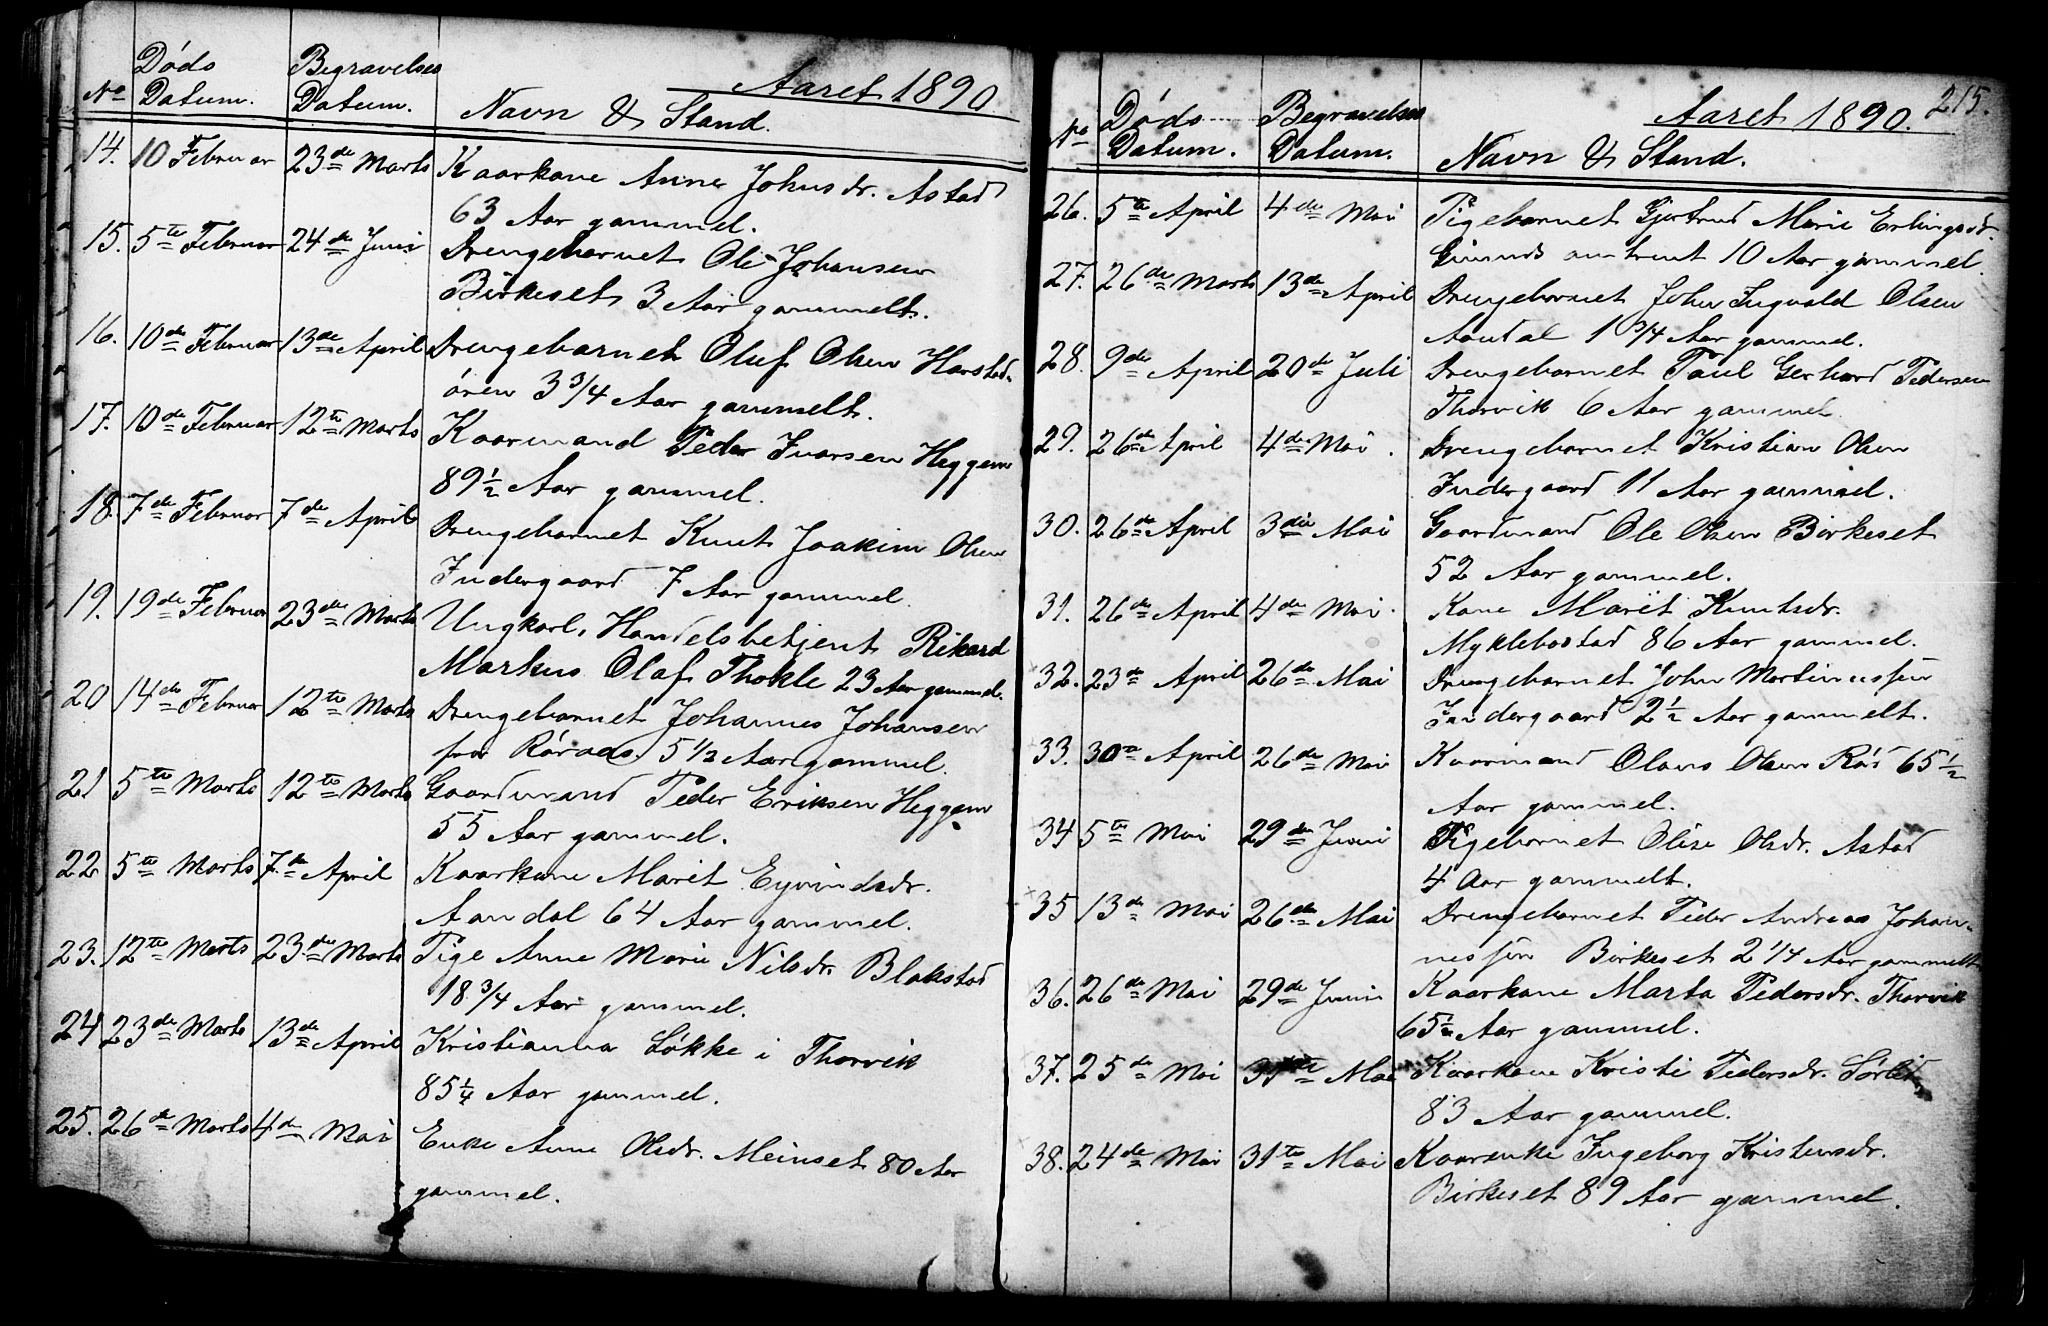 Aaret 1890
No Døds Datum. Begravelses Datum. Navn & Stand.
14. 10 Februar 23de Marts Kaarkone Anne Johnsdr. Astad
63 Aar gammel.
15. 5te Februar 24de Juni Drengebarnet Ole Johansen
Birkeset 3 Aar gammelt.
16. 10de Februar 13de April Drengebarnet Oluf Olsen Harstad-
ören 3 3/4 Aar gammelt.
17. 10de Februar 12te Marts Kaarmand Peder Ivarsen Heggem
89 1/2 Aar gammel.
18. 7de Februar 7de April Drengebarnet Knut Joakim Olsen
Indergaard 7 Aar gammel.
19. 19de Februar 23de Marts Ungkarl, Handelsbetjent Rikard
Markus Olaf Thokle 23 Aar gammel.
20 14de Februar 12te Marts Drengebarnet Johannes Johansen
fra Röraas. 5 1/2 Aar gammel.
21 5te Marts 12te Marts Gaardmand Peder Eriksen Heggem
55 Aar gammel.
22 5te Marts 7de April Kaarkone Marit Eyvindsdr.
Aandal 64 Aar gammel.
23. 12te Marts 23de Marts Pige Anne Marie Nilsdr. Blakstad
18 3/4 Aar gammel.
24 23de Marts 13de April Kristianna Løkke i Thorvik
85 1/4 Aar gammel.
25. 26de Marts 4de Mai Enke Anne Olsdr. Meinset 80 Aar
gammel.
215.
Aaret 1890.
No Døds Datum. Begravelses Datum. Navn & Stand.
26. 5te April 4de Mai Pigebarnet Gjertrud Marie Erlingsdr.
omtrent 10 Aar gammel.
27. 26de Marts 13de April Drengebarnet John Ingvald Olsen
Aandal 1 3/4 Aar gammel.
28. 9de April 20de Juli Drengebarnet Paul Gerhard Pedersen
Thorvik 6 Aar gammel.
29. 26de April 4de Mai. Drengebarnet Kristian Olsen
Indergaard 11 Aar gammel.
30. 26de April 3die Mai Gaardmand Ole Olsen Birkeset
52 Aar gammel.
31. 26de April 4de Mai. Kone Marit Knutsdr.
Myklebostad 86 Aar gammel.
32. 23de April 26de Mai Drengebarnet John Martinussen
Indergaard 2 1/2 Aar gammelt.
33. 30te April 26de Mai Kaarmand Olaus Olsen Röd 65 1/2
Aar gammel.
34 5te Mai 29de Juni Pigebarnet Olise Olsdr. Astad
4 Aar gammelt.
35 13de Mai 26de Mai Drengebarnet Peder Andreas Johan-
nessen Birkeset 2 1/4 Aar gammelt
36. 26de Mai 29de Juni Kaarkone Marta Pedersdr. Thorvik
65 1/2 Aar gammel.
37. 25de Mai 31te Mai Kaarkone Kristi Pedersdr.
83 Aar gammel.
38. 24de Mai 31te Mai Kaarenke Ingeborg Kristensdr.
Birkeset 89 Aar gammel.